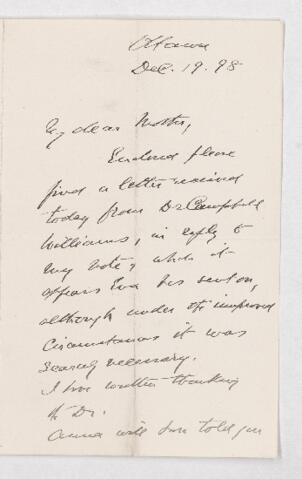 Ottawa
Dec. 19. 98
My dear Mother,
Enclosed please
find a letter received
today from Dr Campbell
Williams, in reply to
my note, which it
appears Eva has sent on,
although under the improved
circumstances it was
scarcely necessary.
I have written thanking
the Dr.
Anna will have told you